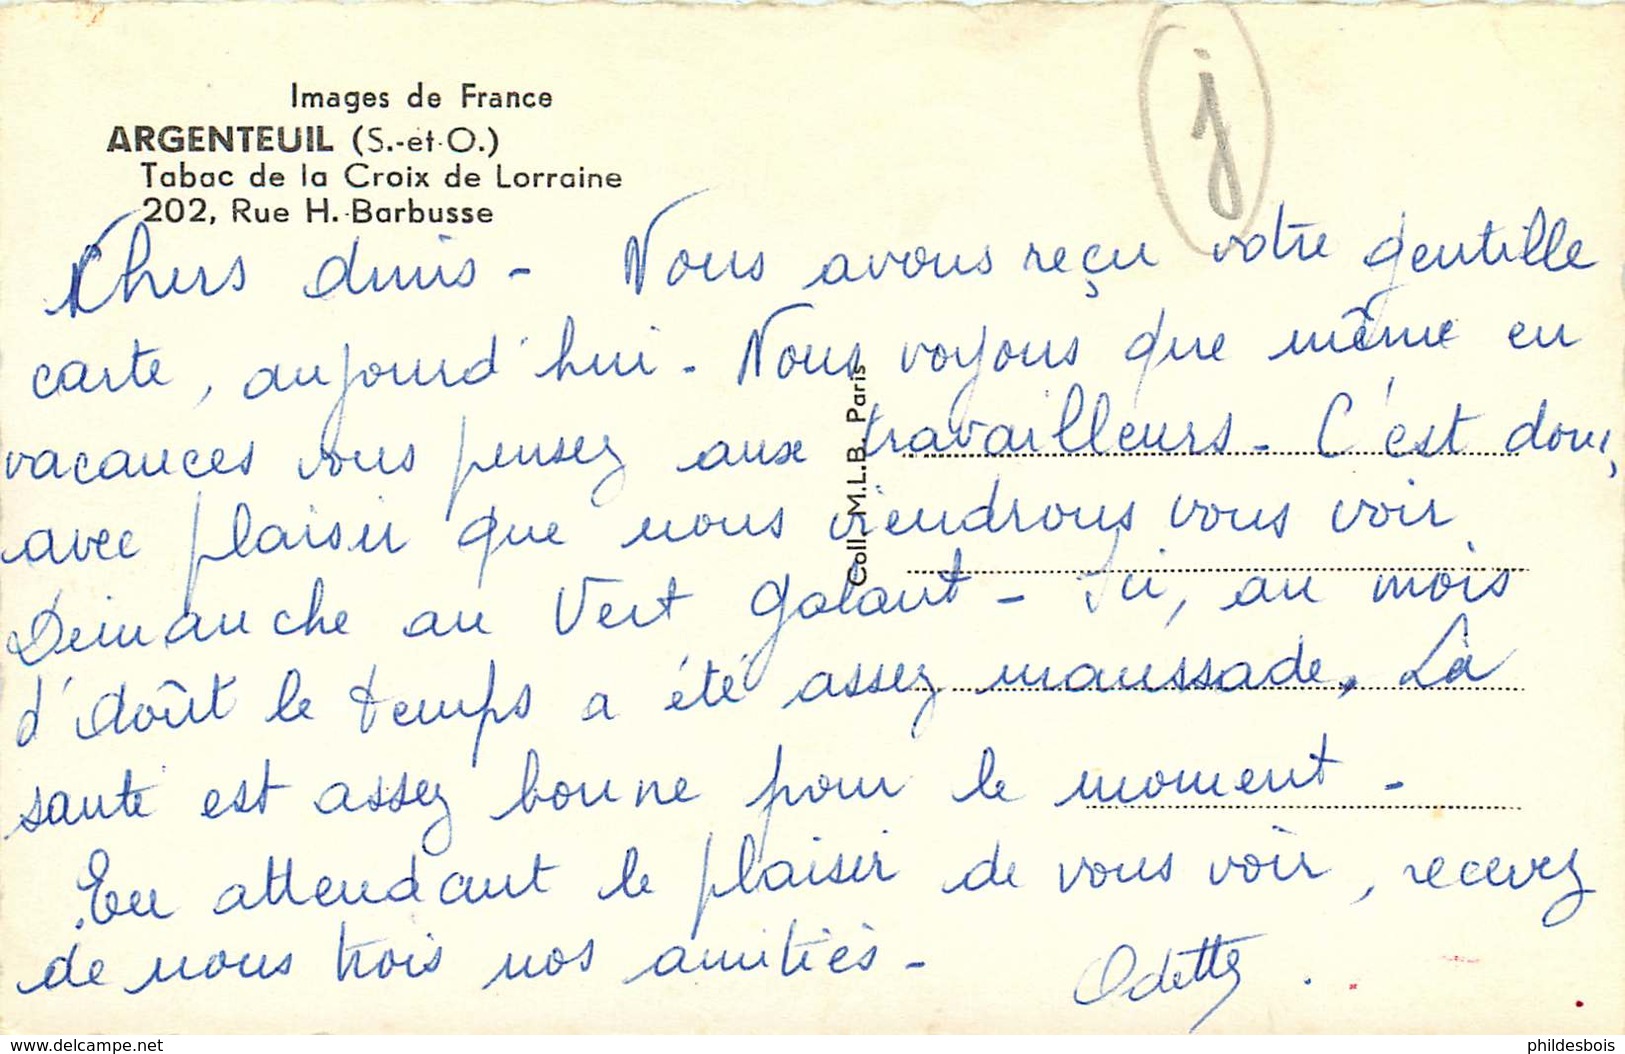 Images de France
ARGENTEUIL (S.-et-O.)
Tabac de la Croix de Lorraine
202, Rue H. Barbusse
j
Chers amis - Nous avons reçu votre gentille
carte, aujourd'hui - Nous voyons que même en
vacances vous pensez aux travailleurs - C'est donc,
avec plaisir que nous viendrons vous voir
Dimanche au Vert Galant - Ici, au mois
d'août le temps a été assez maussade. La
santé est assez bonne pour le moment -
En attendant le plaisir de vous voir, recevez
de nous trois nos amitiés -
Odette.
Coll. M.L.B. Paris
www.delcampe.net
phildesbois